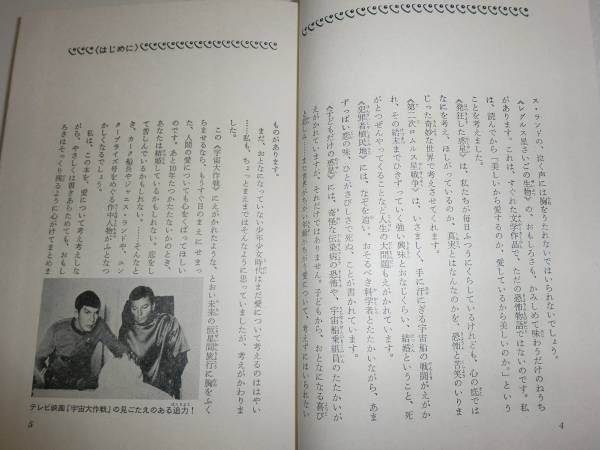 ス・ランドの、泣く声には胸をうたれないではいられないでしょう。
《レグルス星さいごの生物》の、おもしろさも、かみしめて味わうだけのねうち
があります。これは、すぐれた文学作品で、ただの恐怖物語ではないのです。私
は、読んでから「美しいから愛するのか、愛しているから美しいのか。」という
ことを考えました。
《発狂した惑星》は、私たちが毎日ふつうにくらしているけれども、心の底では
なにを考え、ほしがっているのか、真実とはなんなのかを、恐怖と苦笑のいりま
じった奇妙な世界で考えさせてくれます。
《第二次ロムルス星戦争》は、いさましく、手に汗にぎる宇宙船の戦闘がえがか
れ、その結末までひきずっていく強い興味とおなじくらい、結婚ということ、死
がとつぜんやってくることなど人生の大問題もえがかれています。
《犯罪者植民地》には、なぞを追い、おそるべき科学者とたたかいながら、あま
ずっぱい恋の味、ひとがさびしさで死ぬ、ことが書かれています。
《子どもだけの惑星》には、奇怪な伝染病の恐怖や、宇宙船乗組員のたたかいが
えがかれていますが、それだけではありません。子どもから、おとなになる喜び
4
〈はじめに〉
ものがあります。
まだ、おとなになっていない少年少女時代はまだ愛について考えるのははやい
……私も、ちょっとまえまではそんなように思っていましたが、考えがかわりま
した。
この《宇宙大作戦》にえがかれたような、とおい未来の恒星間旅行に胸をふく
らませるなら、もうすぐ目のまえにせまっ
た、人間の愛についても心をくばってほしい
のです。あと10年たつかたたないかのとき、
あなたは結婚しているかもしれない、恋をし
て苦しんでいるかもしれない、……そんなと
き、カーク船長やジャニス・ランドや、エン
タープライズ号をめぐる作中人物がふとなつ
かしくなるでしょう。
私は、この本を、愛について考え考えしな
がら、やさしくは書きあらためても、おもし
ろさはそっくり残るように心がけてまとめま
テレビ映画『宇宙大作戦』の見ごたえのある迫力！
5